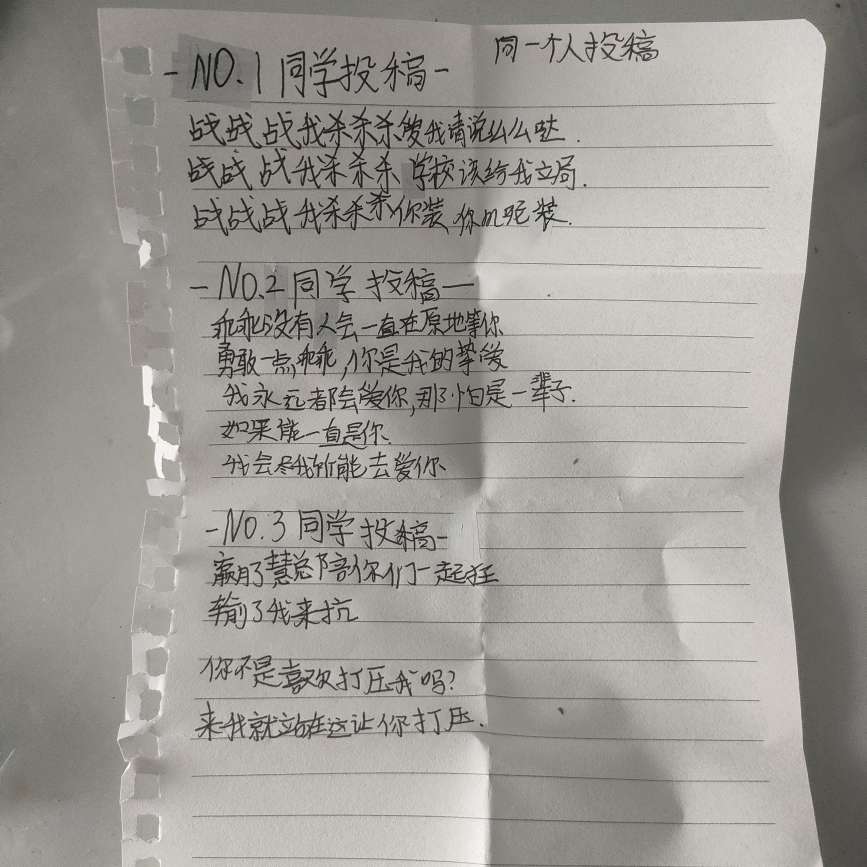 同一个人投稿
-NO.1同学投稿-
战战战我杀杀杀傻我请说么么哒.
战战战我杀杀杀 学校该给我立局.
战战战我杀杀杀你装你呢装.
-NO.2同学投稿—
乖乖没有人会一直在原地等你
勇敢一点乖乖,你是我的挚爱
我永远都会爱你,那怕是一辈子.
如果能一直是你.
我会尽我所能去爱你
-NO.3同学投稿-
赢了慧总陪你们一起狂
输了我来抗
你不是喜欢打压我吗?
来我就站在这让你打压.